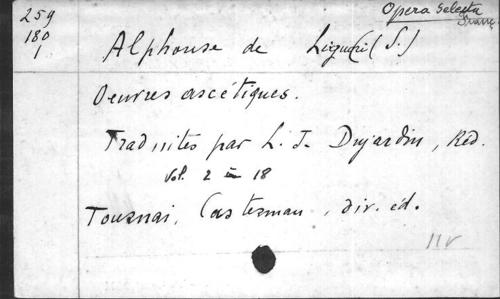 259
180
1
Opera Selecta
Franç.
Alphonse de Liguori (S.)
Oeuvres ascétiques.
Traduites par L. J. Dujardin, Red.
Vol. 2 à 18
Tournai, Casterman, div. éd.
11 v